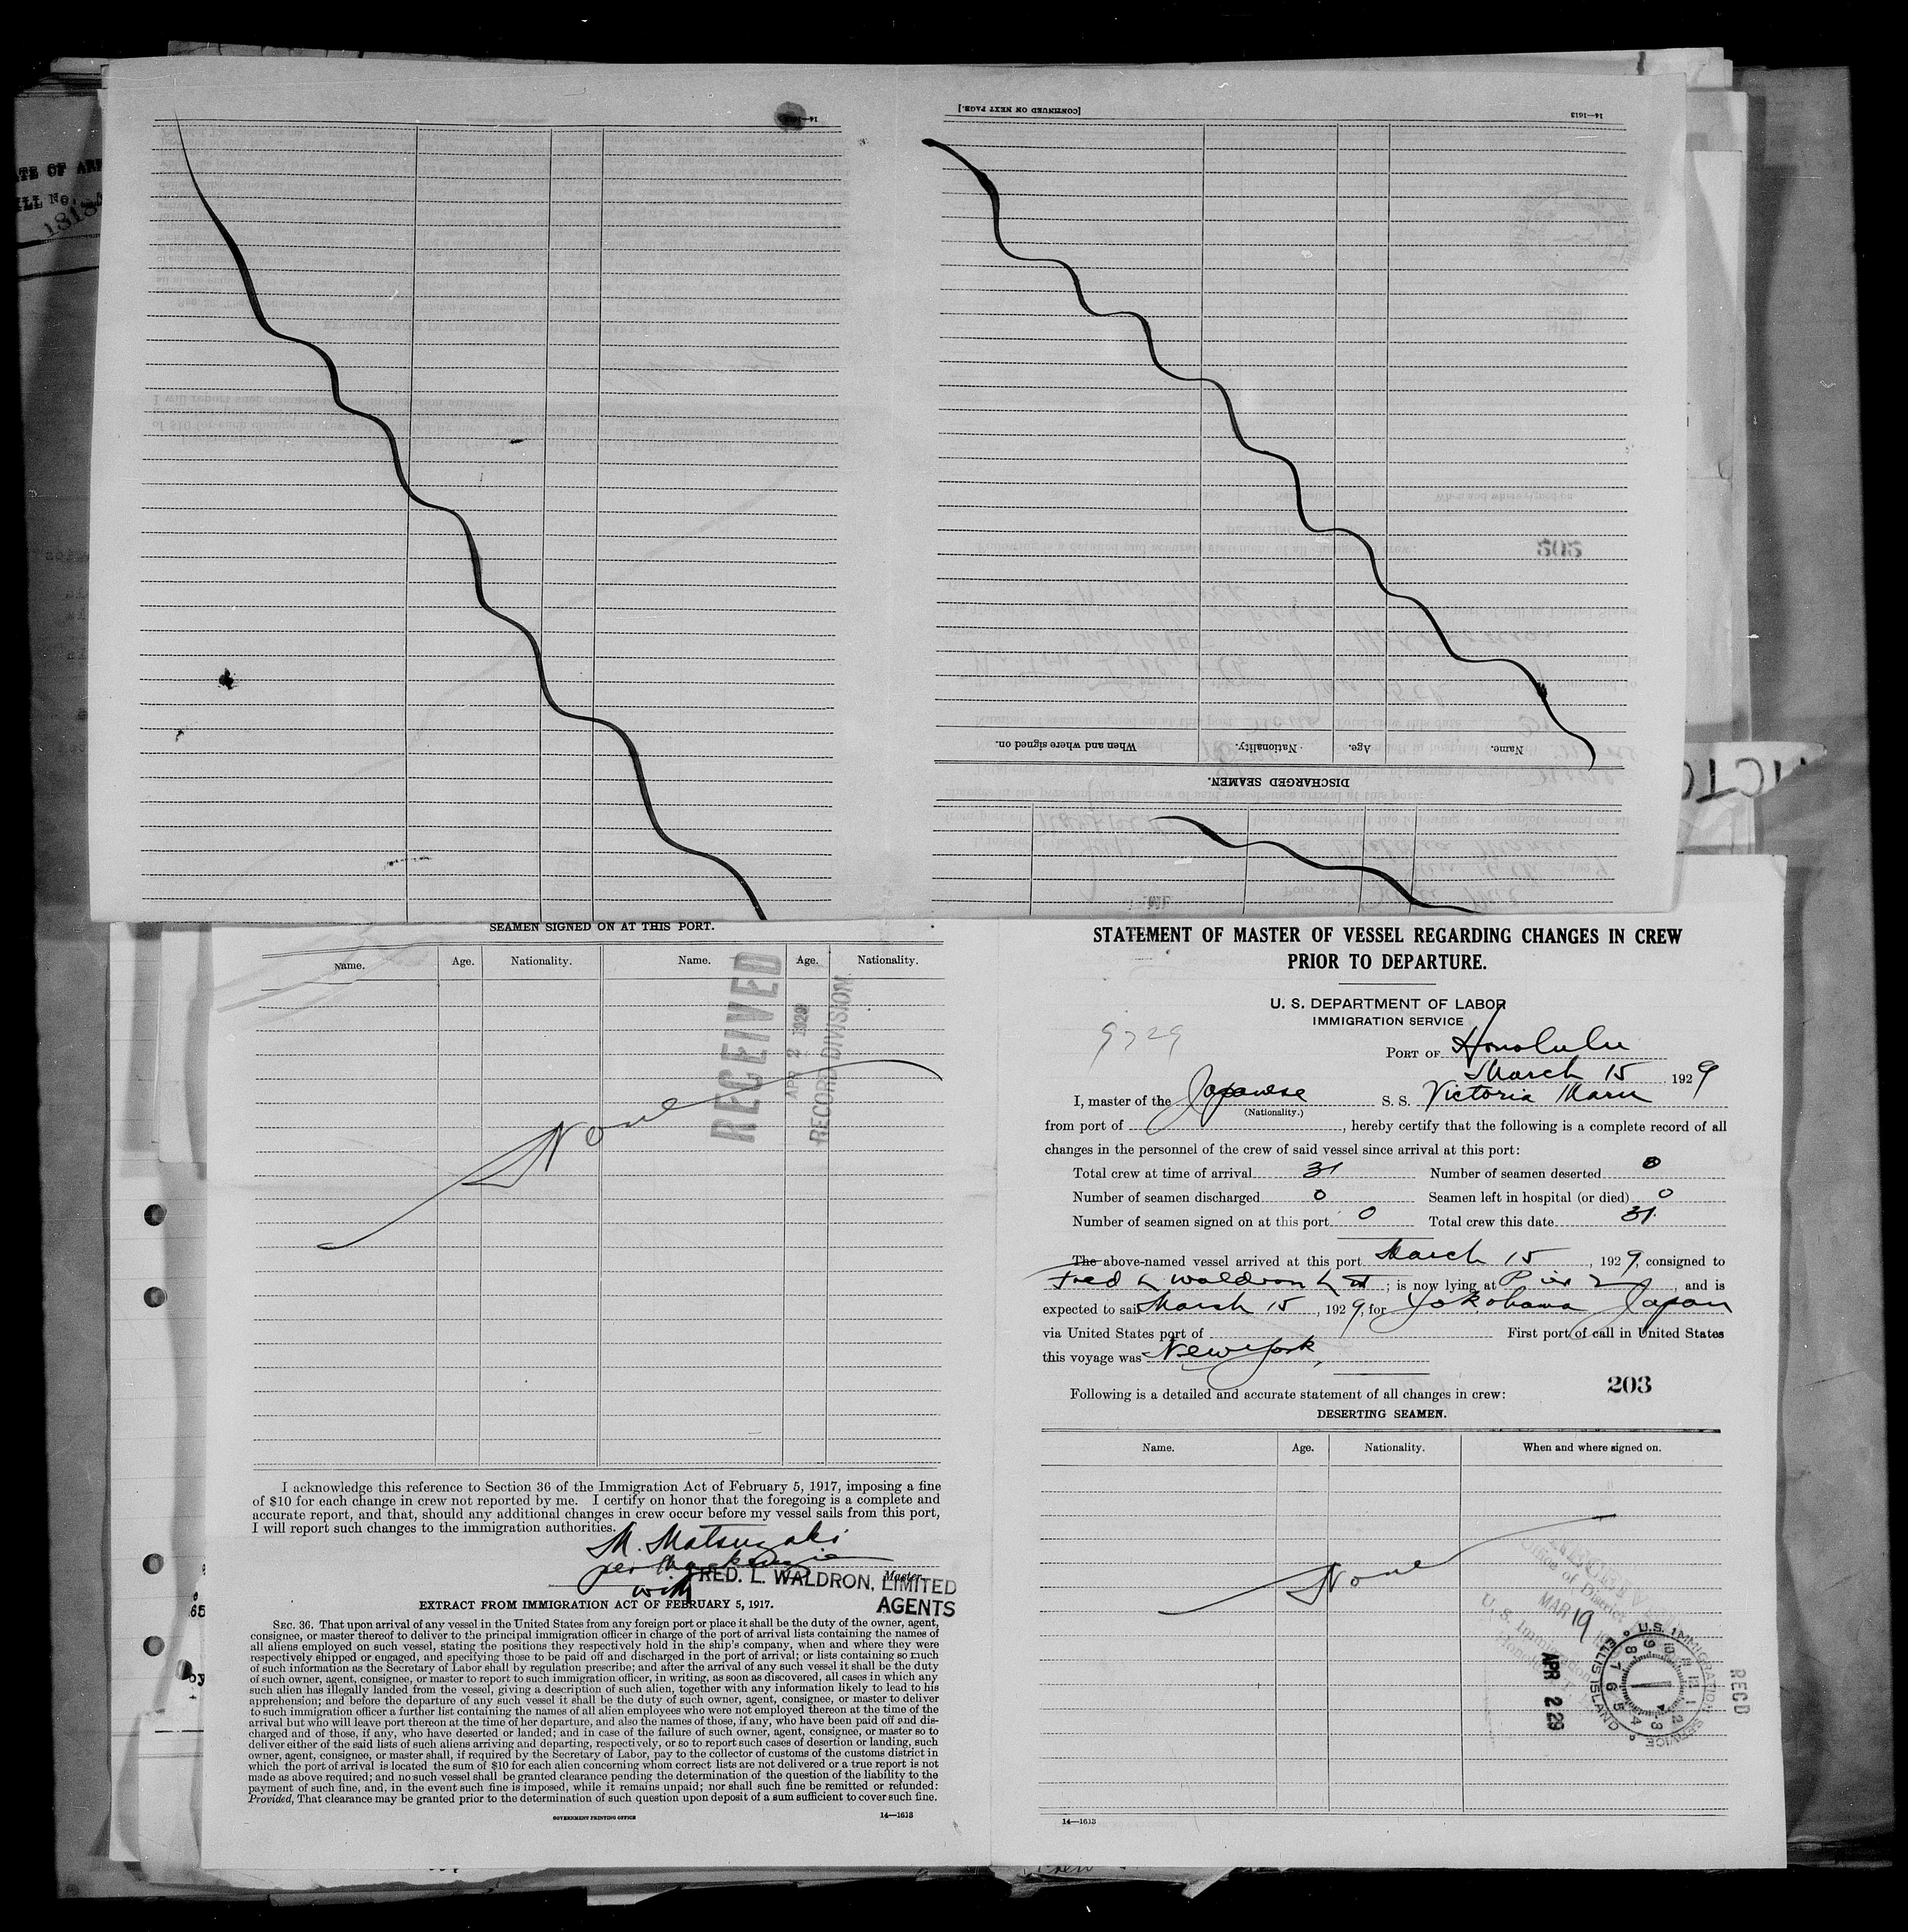 14—1613
[CONTINUED ON NEXT PAGE.]
14—1613
Name.
Age.
Nationality.
When and where signed on.
DISCHARGED SEAMEN.
SEAMEN SIGNED ON AT THIS PORT.
Name.
Age.
Nationality.
Name.
Age.
Nationality.
RECEIVED
APR 2 1929
RECORD DIVISION
None
I acknowledge this reference to Section 36 of the Immigration Act of February 5, 1917, imposing a fine
of $10 for each change in crew not reported by me. I certify on honor that the foregoing is a complete and
accurate report, and that, should any additional changes in crew occur before my vessel sails from this port,
I will report such changes to the immigration authorities.
M. Matsuzaki
per Mackenzie
Master.
with FRED. L. WALDRON, LIMITED
AGENTS
EXTRACT FROM IMMIGRATION ACT OF FEBRUARY 5, 1917.
SEC. 36. That upon arrival of any vessel in the United States from any foreign port or place it shall be the duty of the owner, agent,
consignee, or master thereof to deliver to the principal immigration officer in charge of the port of arrival lists containing the names of
all aliens employed on such vessel, stating the positions they respectively hold in the ship's company, when and where they were
respectively shipped or engaged, and specifying those to be paid off and discharged in the port of arrival; or lists containing so much
of such information as the Secretary of Labor shall by regulation prescribe; and after the arrival of any such vessel it shall be the duty
of such owner, agent, consignee, or master to report to such immigration officer, in writing, as soon as discovered, all cases in which any
such alien has illegally landed from the vessel, giving a description of such alien, together with any information likely to lead to his
apprehension; and before the departure of any such vessel it shall be the duty of such owner, agent, consignee, or master to deliver
to such immigration officer a further list containing the names of all alien employees who were not employed thereon at the time of the
arrival but who will leave port thereon at the time of her departure, and also the names of those, if any, who have been paid off and dis-
charged and of those, if any, who have deserted or landed; and in case of the failure of such owner, agent, consignee, or master so to
deliver either of the said lists of such aliens arriving and departing, respectively, or so to report such cases of desertion or landing, such
owner, agent, consignee, or master shall, if required by the Secretary of Labor, pay to the collector of customs of the customs district in
which the port of arrival is located the sum of $10 for each alien concerning whom correct lists are not delivered or a true report is not
made as above required; and no such vessel shall be granted clearance pending the determination of the question of the liability to the
payment of such fine, and, in the event such fine is imposed, while it remains unpaid; nor shall such fine be remitted or refunded:
Provided, That clearance may be granted prior to the determination of such question upon deposit of a sum sufficient to cover such fine.
GOVERNMENT PRINTING OFFICE
14—1613
STATEMENT OF MASTER OF VESSEL REGARDING CHANGES IN CREW
PRIOR TO DEPARTURE.
U. S. DEPARTMENT OF LABOR
IMMIGRATION SERVICE
9729
PORT OF Honolulu
March 15, 1929
I, master of the Japanese S. S. Victoria Maru
(Nationality.)
from port of , hereby certify that the following is a complete record of all
changes in the personnel of the crew of said vessel since arrival at this port:
Total crew at time of arrival 31 Number of seamen deserted 0
Number of seamen discharged 0 Seamen left in hospital (or died) 0
Number of seamen signed on at this port 0 Total crew this date 31.
The above-named vessel arrived at this port March 15, 1929, consigned to
Fred L Waldron Ltd; is now lying at Pier 2, and is
expected to sail March 15, 1929, for Yokohama Japan
via United States port of First port of call in United States
this voyage was New York
203
Following is a detailed and accurate statement of all changes in crew:
DESERTING SEAMEN.
Name.
Age.
Nationality.
When and where signed on.
None
Office of District
MAR 19
U. S. Immigration
Honolulu
U.S. IMMIGRATION SERVICE
ELLIS ISLAND
APR 2 29
RECD
14—1613